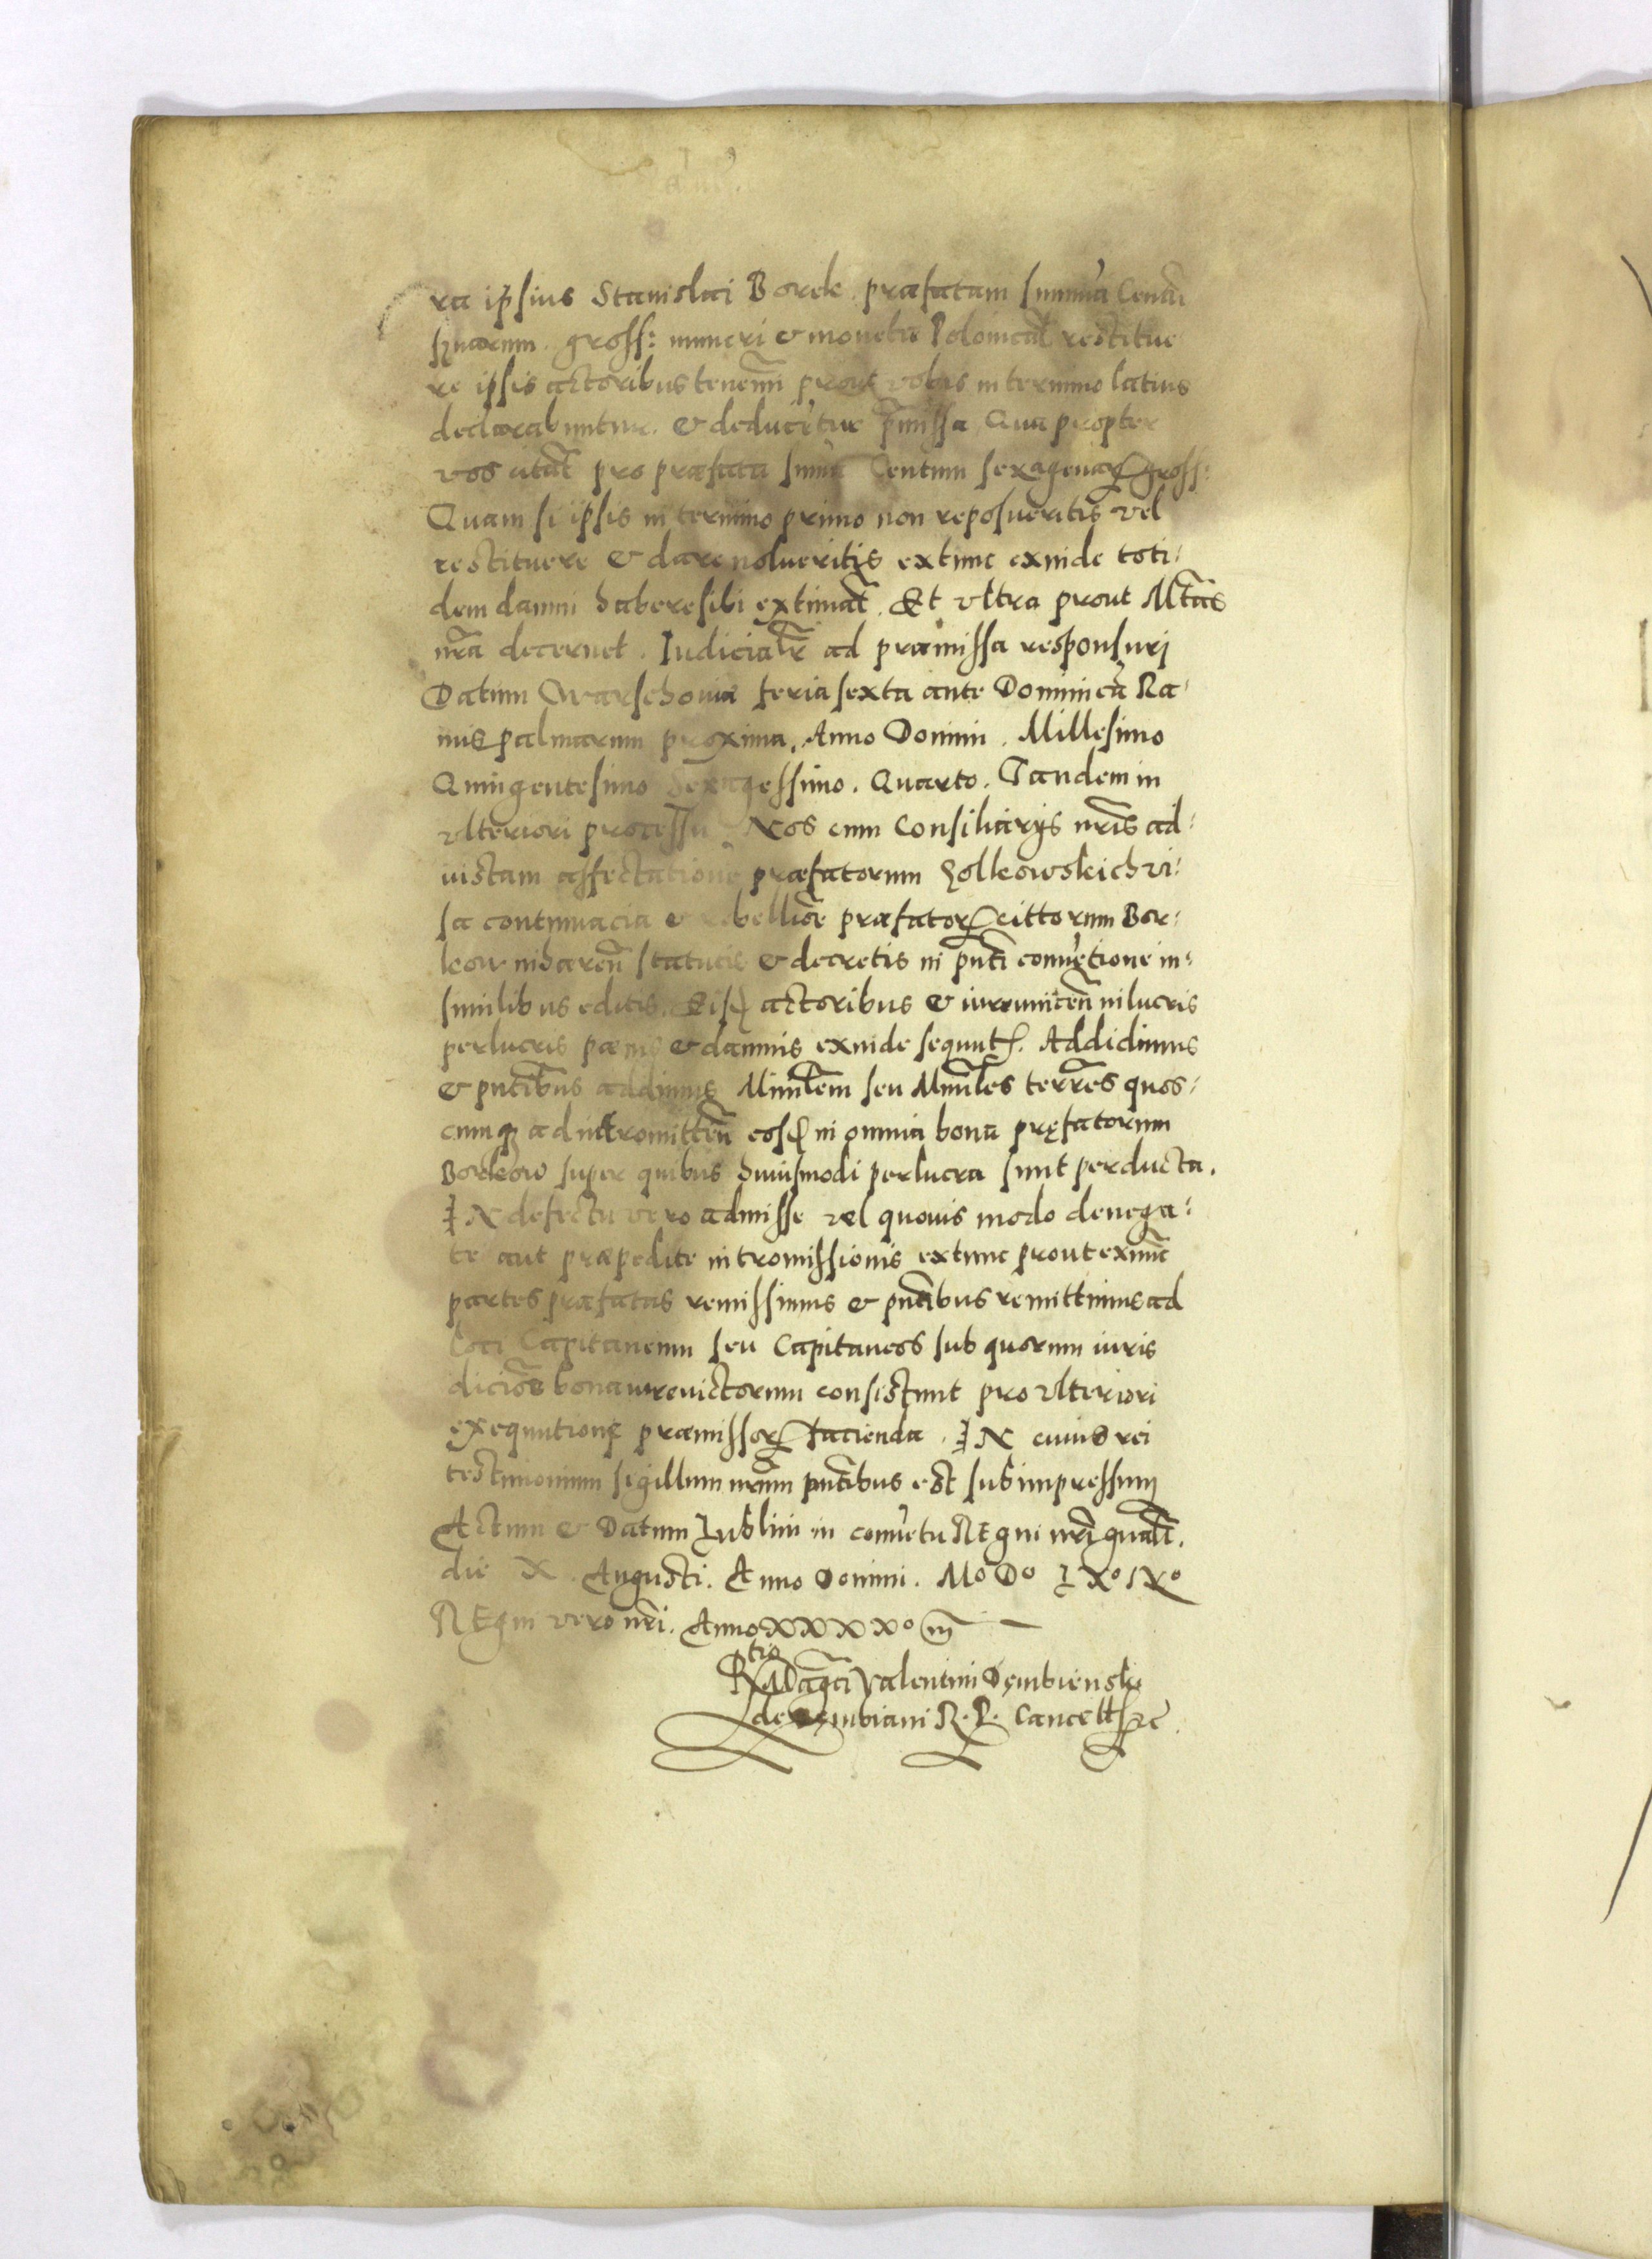 ra ipsius Stanislai Borek præfatam summã Centũ
grosſ: numeri & monetæ Polonicał restitue
re ipsis actoribus tenemĩ prout vobis in termino latius
declarabuntur. & deducẽtur p̃missa Qua propter
vos citat̃ pro præfata sum̃a Centum sexagenarꝝ grosſ:
Quam si ipsis in termino primo non reposueritis vel
restituere & dare nolueritis extunc exinde toti:
dem damni habere sibi extimat̃. Et vltra prout Mt̃as
nr̃a decernet. Iudicialr̃ ad præmissa responsurj
Datum Warschoviæ feria sexta ante Dominicã Ra:
mis palmarum proxima. Anno Domini. Millesimo
Quingentesimo Sexagessimo. Quarto. Tandem in
vlteriori processu Nos cum Consiliarijs nr̃is ad:
iustam affectationẽ præfatorum Zolkowskich vi:
sa contumacia & rebellioẽ præfatorꝝ cittorum Bor:
kow inhæreñ statutis & decretis in pñti conuẽtione in:
similibus editis. Eisꝺ actoribus & iureuinceñ in lucris
perlucris pænis & damnis exinde sequutꝭ. Addidimus
& pñtibus addimus Minrłem seu Mñrles terrr̃es quos:
cunqꝫ ad intromitteñ eosꝺ in omnia bona pręfatorum
Borkow super quibus huiusmodi perlucra sunt perducta.
IN defectu vero admisse vel quouis modo denega:
te aut præpedite intromissionis extunc prout exnũc
partes præfatas remissimus & pñtibus remittimus ad
loci Capitaneum seu Capitaneos sub quorum iuris
dicioẽ bona iureuictorum consistunt pro vlteriori
exequutione præmissorꝝ facienda. IN cuius rei
testimonium sigillum nr̃um pñtibus est subimpressum
Actum & Datum Lublini in conuẽtu REgni nr̃i gñali.
die X. Augusti. Anno Domini. Mº Dº LXº VIº
REgni vero nr̃i. Anno XXXXº
Rtio Mag̃ci Valentini Dembienski
de Dembiani R. P. Cancell ꝛc̃.